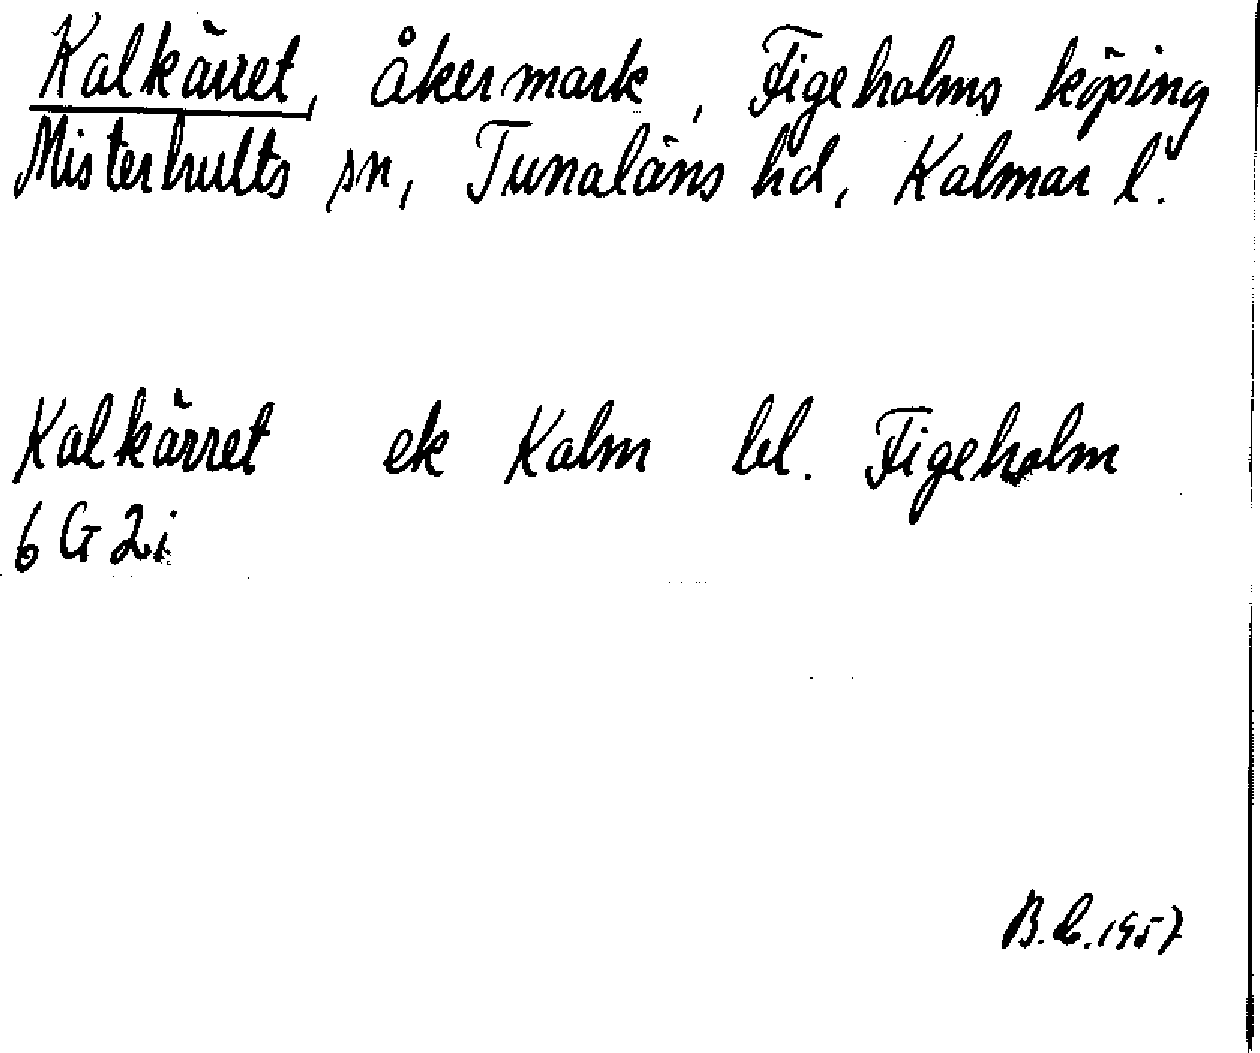 Kalkärret, åkermark, Figeholms köping
Misterhults sn, Tunaläns hd, Kalmar l.
Kalkärret ek Kalm bl. Figeholm
6 G 2i
1957